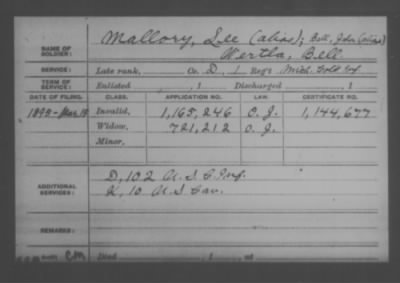 NAME OF SOLDIER: Mallory, Lee (alias); Bell, John (alias)
Wertha, Bell.
SERVICE: Late rank, Co. D, 1 Reg't Mich. Cold Inf
TERM OF SERVICE: Enlisted , 1 Discharged , 1
DATE OF FILING. CLASS. APPLICATION NO. LAW. CERTIFICATE NO.
1893-Mar 18 Invalid, 1,165,246 C. J. 1,144,677
Widow, 721,212 O. J.
Minor,
ADDITIONAL SERVICES: D, 102 U. S. C. Inf.
K, 10 U. S. Cav.
REMARKS:
Died , 1 , at